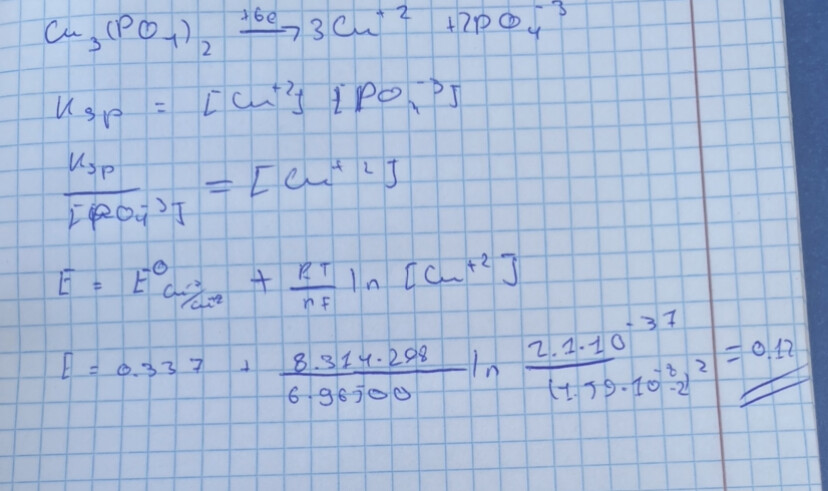 Cu₃(PO₄)₂ —+6e→ 3Cu⁺² +2PO₄⁻³
Ksp = [Cu⁺²] [PO₄⁻³]
Ksp / [PO₄⁻³] = [Cu⁺²]
E = E⁰ + RT/nF ln [Cu⁺²]
E = 0.337 + 8.314·298 / 6·96500 ln 2.1·10⁻³⁷ / ( ·10⁻⁸·2)² = 0.12